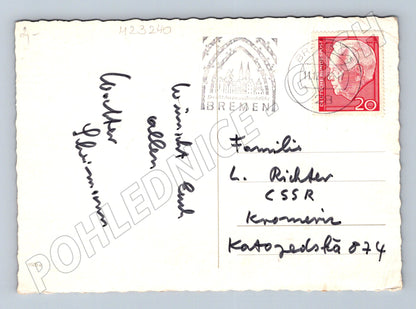 2,-
423240
BREMEN
20
Wünscht Euch
allen
Walter
Familie
L. Richter
CSSR
Kromeriz
Katogedská 874
POHLEDNICE